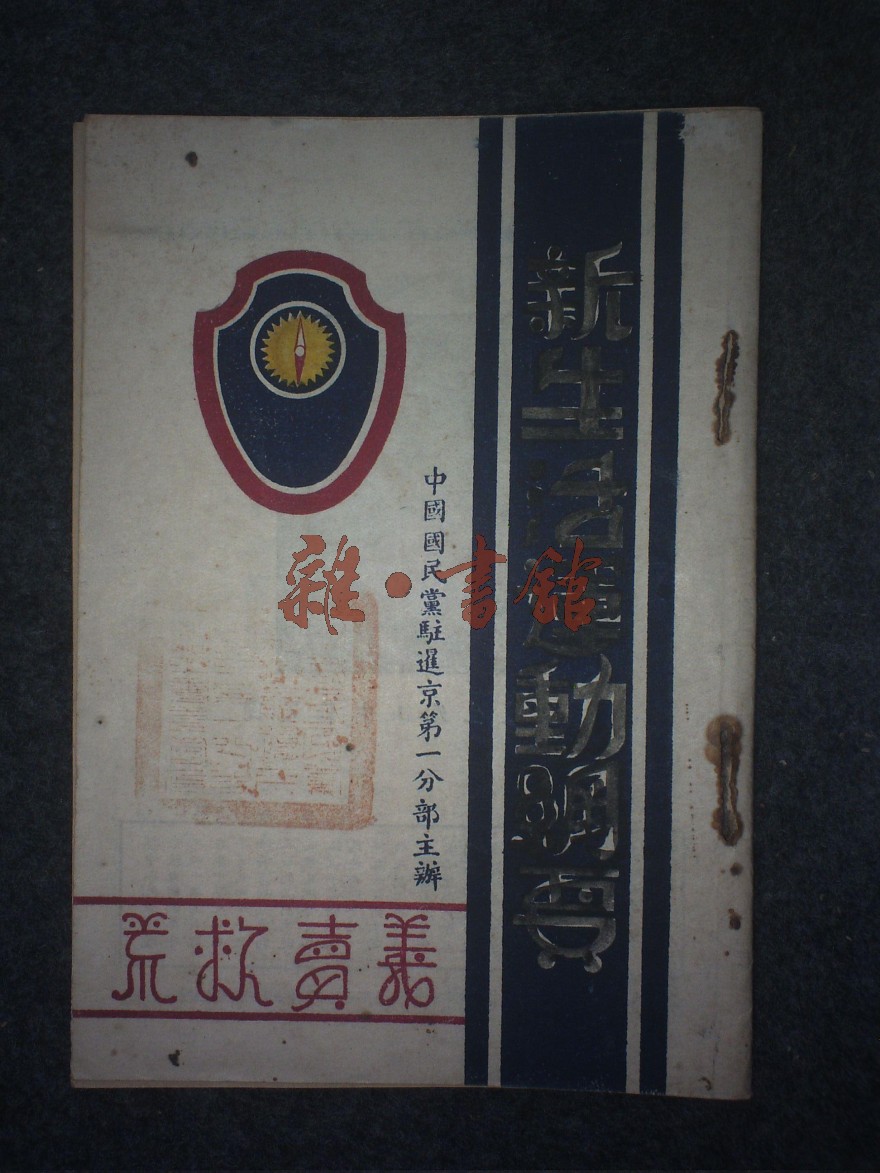 新生活運動綱要
中國國民黨駐暹京第一分部主辦
義賣救荒
雜·書館